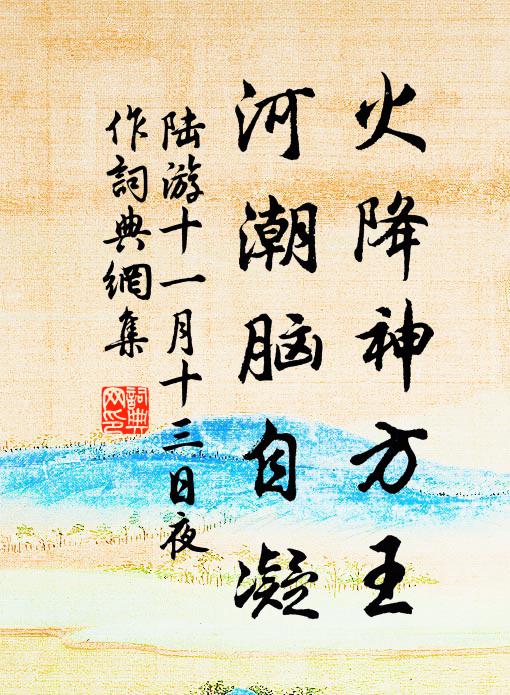 火降神方王
河潮脑自凝
陆游十一月十三日夜
作詞典網集
詞典
网印